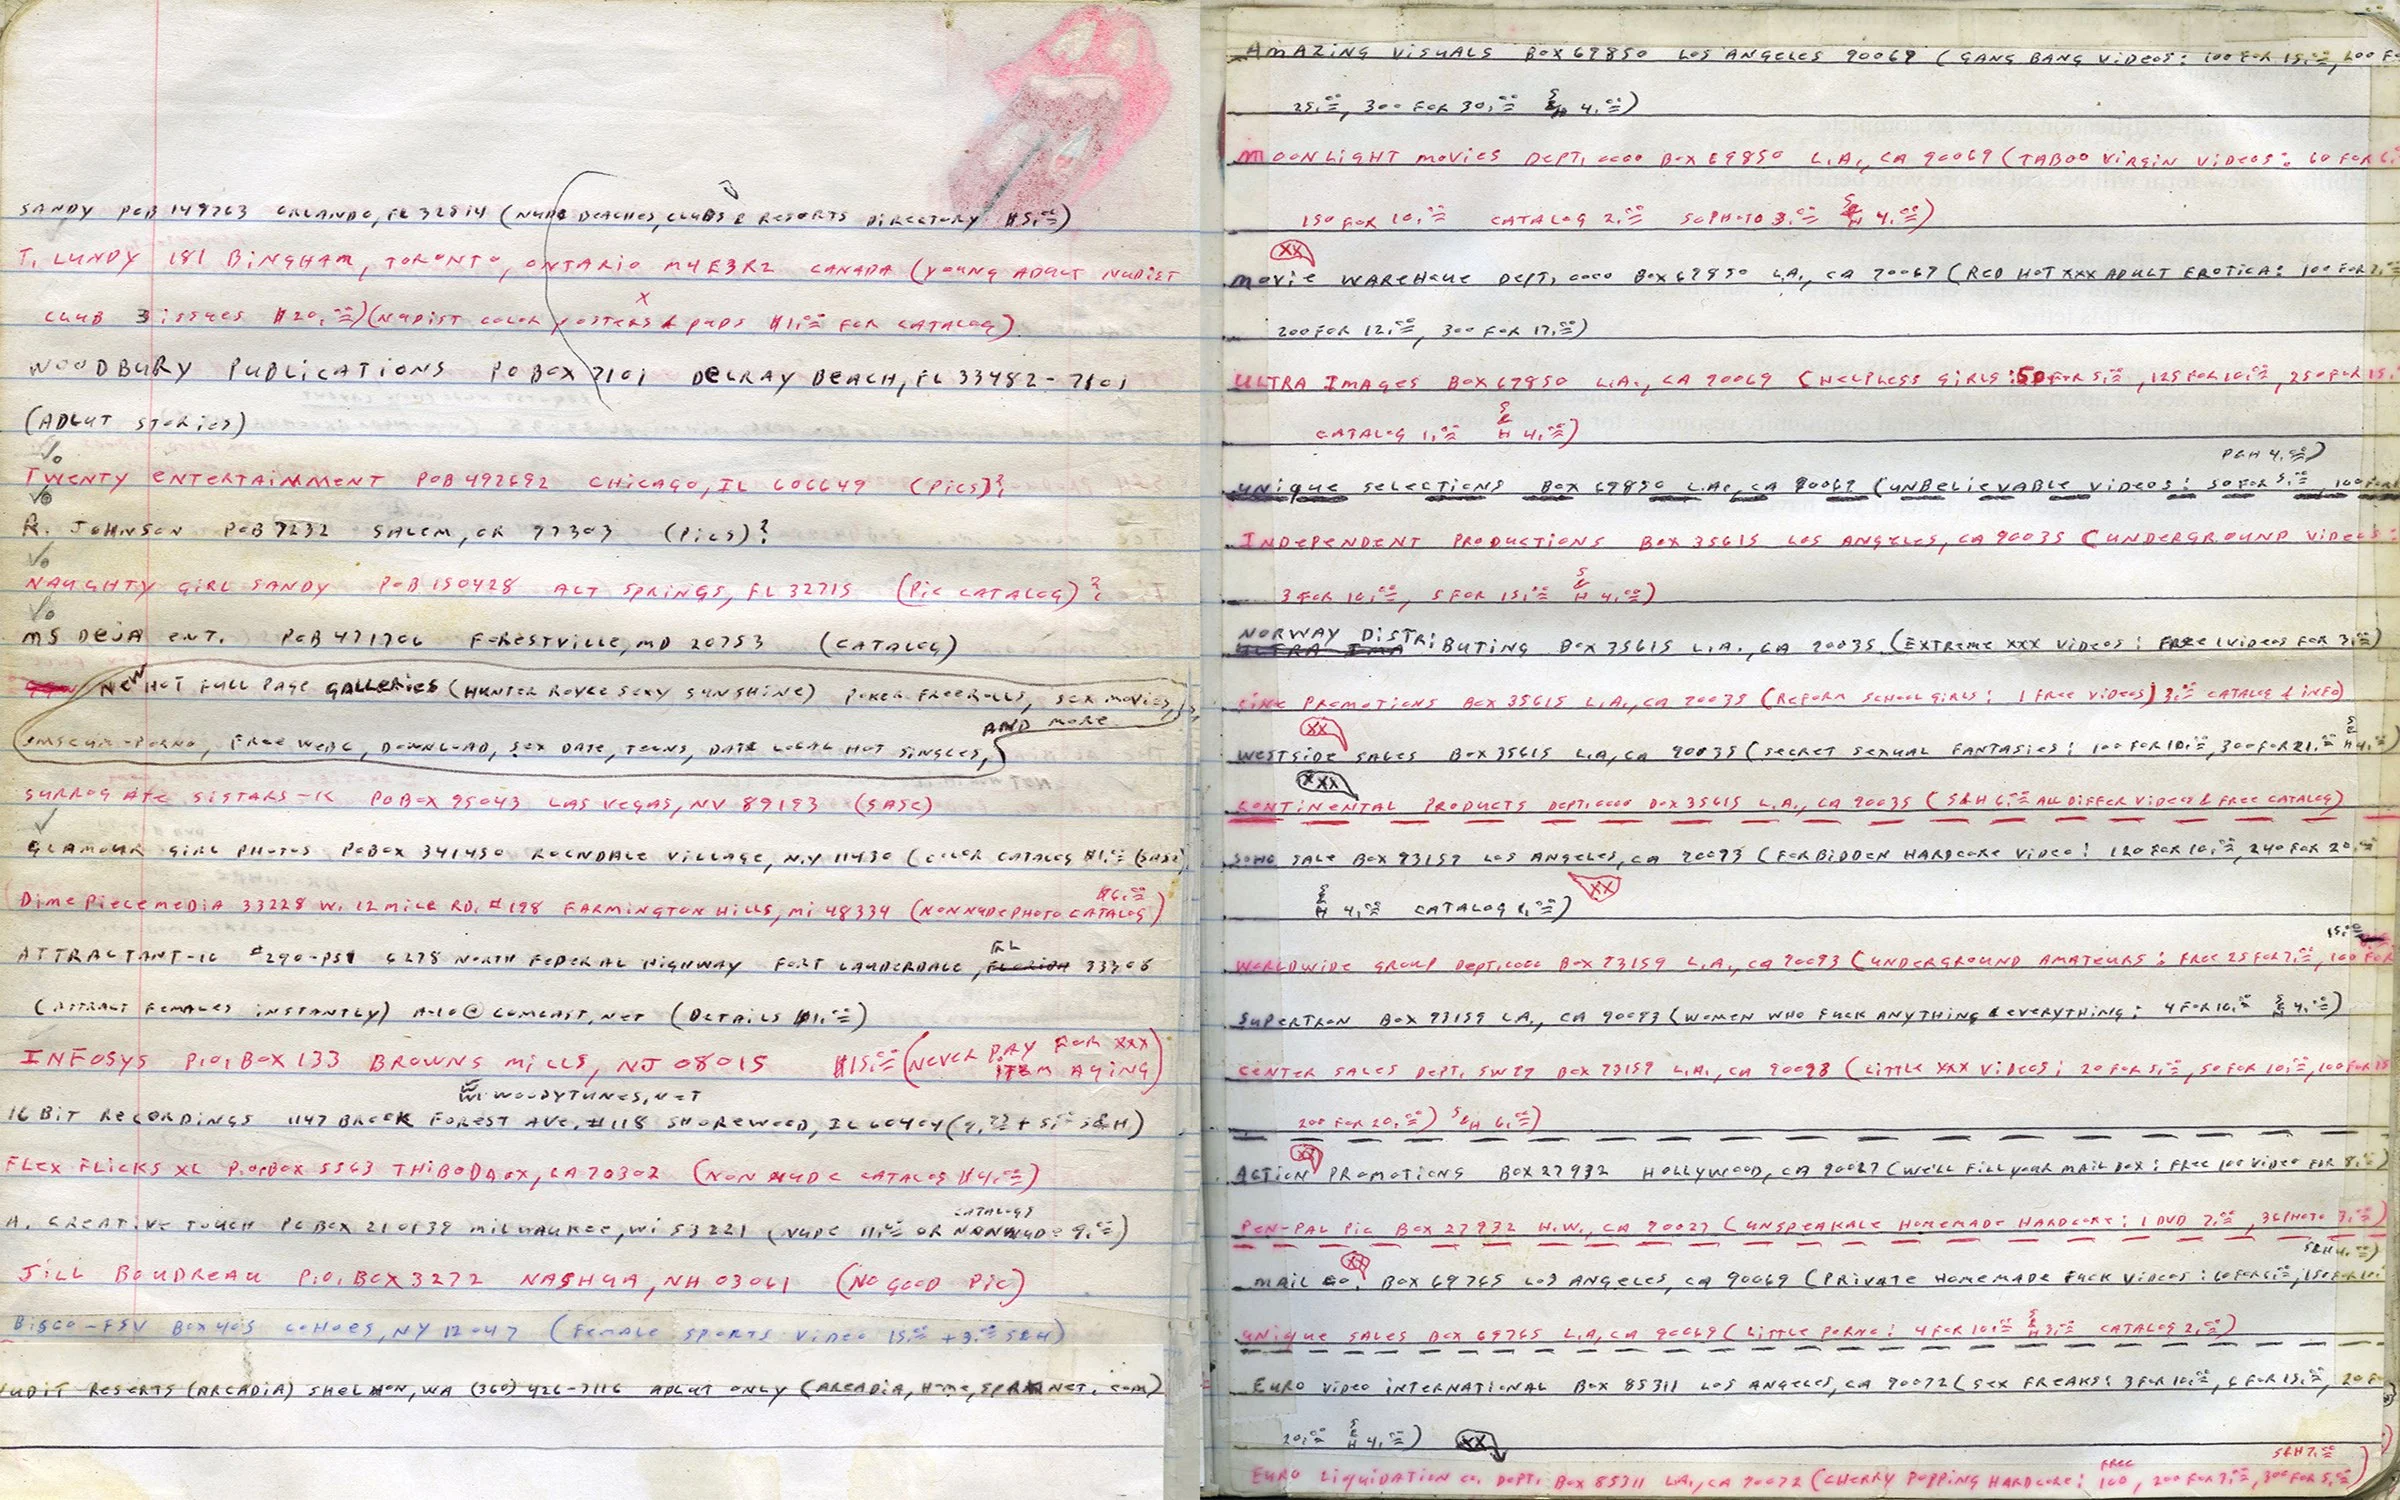 SANDY POB 149763 ORLANDO, FL 32814 (NUDE BEACHES, CLUBS & RESORTS DIRECTORY $5.00)
T. LUNDY 181 BINGHAM, TORONTO, ONTARIO M4E3R2 CANADA (YOUNG ADULT NUDIST
X
CLUB 3 ISSUES $20.00) (NUDIST COLOR POSTERS & $1.00 FOR CATALOG)
WOODBURY PUBLICATIONS PO BOX 7101 DELRAY BEACH, FL 33482-7101
(ADLUT STORIES)
TWENTY ENTERTAINMENT POB 492692 CHICAGO, IL 606649 (PICS)?
R. JOHNSON POB 7232 SALEM, OR 97303 (PICS)?
NAUGHTY GIRL SANDY POB 150428 ALT SPRINGS, FL 32715 (PIC CATALOG)?
MS DEJA ENT. POB 471706 FORESTVILLE, MD 20753 (CATALOG)
NEW HOT FULL PAGE GALLERIES (HUNTER ROYCE SEXY SUNSHINE) POKER FREEROLLS, SEX MOVIES,
AND MORE
PORNO, FREE WEBC, DOWNLOAD, SEX DATE, TEENS, DATE LOCAL HOT SINGLES,
SURROGATE SISTARS-K PO BOX 95043 LAS VEGAS, NV 89193 (SASE)
GLAMOUR GIRL PHOTOS PO BOX 341450 ROCNDALE VILLAGE, N.Y 11430 (COLOR CATALOG $1.00 (SASE)
$6.00
DIMEPIECEMEDIA 33228 W. 12 MILE RD. #198 FARMINGTON HILLS, MI 48334 (NONNUDE PHOTO CATALOG)
FL
ATTRACTANT-10 #290-PS1 6278 NORTH FEDERAL HIGHWAY FORT LAUDERDALE, FLORIDA 33308
(ATTRACT FEMALES INSTANTLY) A-10@COMCAST.NET (DETAILS $1.00)
INFOSYS P.O. BOX 133 BROWNS MILLS, NJ 08015 $15.00 (NEVER PAY FOR XXX
ITEM AGING)
WOODYTUNES.NET
16 BIT RECORDINGS 1147 BROOK FOREST AVE. #118 SHOREWOOD, IL 60404 (9.99 + 5.00 S&H)
FLEX FLICKS XL P.O. BOX 5563 THIBODAUX, LA 70302 (NON NUDE CATALOG $4.00)
CATALOGS
A. CREATIVE TOUCH PO BOX 210139 MILWAUKEE, WI 53221 (NUDE 11.00 OR NONNUDE 9.00)
JILL BOUDREAU P.O. BOX 3272 NASHUA, NH 03061 (NO GOOD PIC)
BISCO-FSV BOX 405 COHOES, NY 12047 (FEMALE SPORTS VIDEO 15.00 + 3.00 S&H)
NUDIT RESORTS (ARCADIA) SHELTON, WA (360) 426-7116 ADLUT ONLY (ARCADIA, HOME, SPRNNET.COM)
AMAZING VISUALS BOX 69850 LOS ANGELES 90069 (GANG BANG VIDEOS: 100 FOR 15.00, 200 FOR
25.00, 300 FOR 30.00 S&H 4.00)
MOONLIGHT MOVIES DEPT. 0000 BOX 69850 L.A., CA 90069 (TABOO VIRGIN VIDEOS: 60 FOR
150 FOR 10.00 CATALOG 2.00 50 PHOTO 3.00 S&H 4.00)
XX
MOVIE WAREHOUE DEPT. 0000 BOX 69850 L.A., CA 90069 (RED HOT XXX ADULT EROTICA: 100 FOR 7.00
200 FOR 12.00, 300 FOR 17.00)
ULTRA IMAGES BOX 69850 L.A., CA 90069 (HELPLESS GIRLS: 50 FOR 5.00, 125 FOR 10.00, 250 FOR 15.
CATALOG 1.00 S&H 4.00)
P&H 4.00)
UNIQUE SELECTIONS BOX 69850 L.A., CA 90069 (UNBELIEVABLE VIDEOS: 50 FOR 5.00, 100 FOR
INDEPENDENT PRODUCTIONS BOX 35615 LOS ANGELES, CA 90035 (UNDERGROUND VIDEOS:
3 FOR 10.00, 5 FOR 15.00 S&H 4.00)
NORWAY DISTRIBUTING BOX 35615 L.A., CA 90035 (EXTREME XXX VIDEOS: FREE 1 VIDEOS FOR 3.00)
PROMOTIONS BOX 35615 L.A., CA 90035 (REFORM SCHOOL GIRLS: 1 FREE VIDEOS) 3.00 CATALOG & INFO)
XX
WESTSIDE SALES BOX 35615 L.A, CA 90035 (SECRET SEXUAL FANTASIES: 100 FOR 10.00, 300 FOR 21.00 S&H 4.00)
XXX
CONTINENTAL PRODUCTS DEPT. 0000 BOX 35615 L.A., CA 90035 (S&H 6.00 ALL DIFFER VIDEOS & FREE CATALOG)
SOHO SALE BOX 93159 LOS ANGELES, CA 90093 (FORBIDDEN HARDCORE VIDEO: 120 FOR 10.00, 240 FOR 20.00
S&H 4.00 CATALOG 1.00) XX
15.00
WORLDWIDE GROUP DEPT. 0000 BOX 93159 L.A., CA 90093 (UNDERGROUND AMATEURS: FREE 25 FOR 7.00, 100 FOR
SUPERTRON BOX 93159 L.A., CA 90093 (WOMEN WHO FUCK ANYTHING & EVERYTHING: 4 FOR 10.00 S&H 4.00)
CENTER SALES DEPT. SW99 BOX 93159 L.A., CA 90093 (LITTLE XXX VIDEOS: 20 FOR 5.00, 50 FOR 10.00, 100 FOR 15
200 FOR 20.00) S&H 6.00)
XX
ACTION PROMOTIONS BOX 27932 HOLLYWOOD, CA 90027 (WE'LL FILL YOUR MAIL BOX: FREE 100 VIDEO FOR 8.00)
PEN-PAL PIC BOX 27932 H.W., CA 90027 (UNSPEAKALE HOMEMADE HARDCORE: 1 DVD 7.00, 36 PHOTO 7.00)
XX S&H 4.00)
MAIL CO. BOX 69765 LOS ANGELES, CA 90069 (PRIVATE HOMEMADE FUCK VIDEOS:
UNIQUE SALES BOX 69765 L.A, CA 90069 (LITTLE PORNO: 4 FOR 10.00 S&H 3.00 CATALOG 2.00)
EURO VIDEO INTERNATIONAL BOX 85311 LOS ANGELES, CA 90072 (SEX FREAKS: 3 FOR 10.00, 6 FOR 15.00, 20 FOR
20.00 S&H 4.00) XX
FREE S&H 7.00
EURO LIQUIDATION CO. DEPT. BOX 85311 L.A., CA 90072 (CHERRY POPPING HARDCORE: 100, 200 FOR 3.00, 300 FOR 5.00)